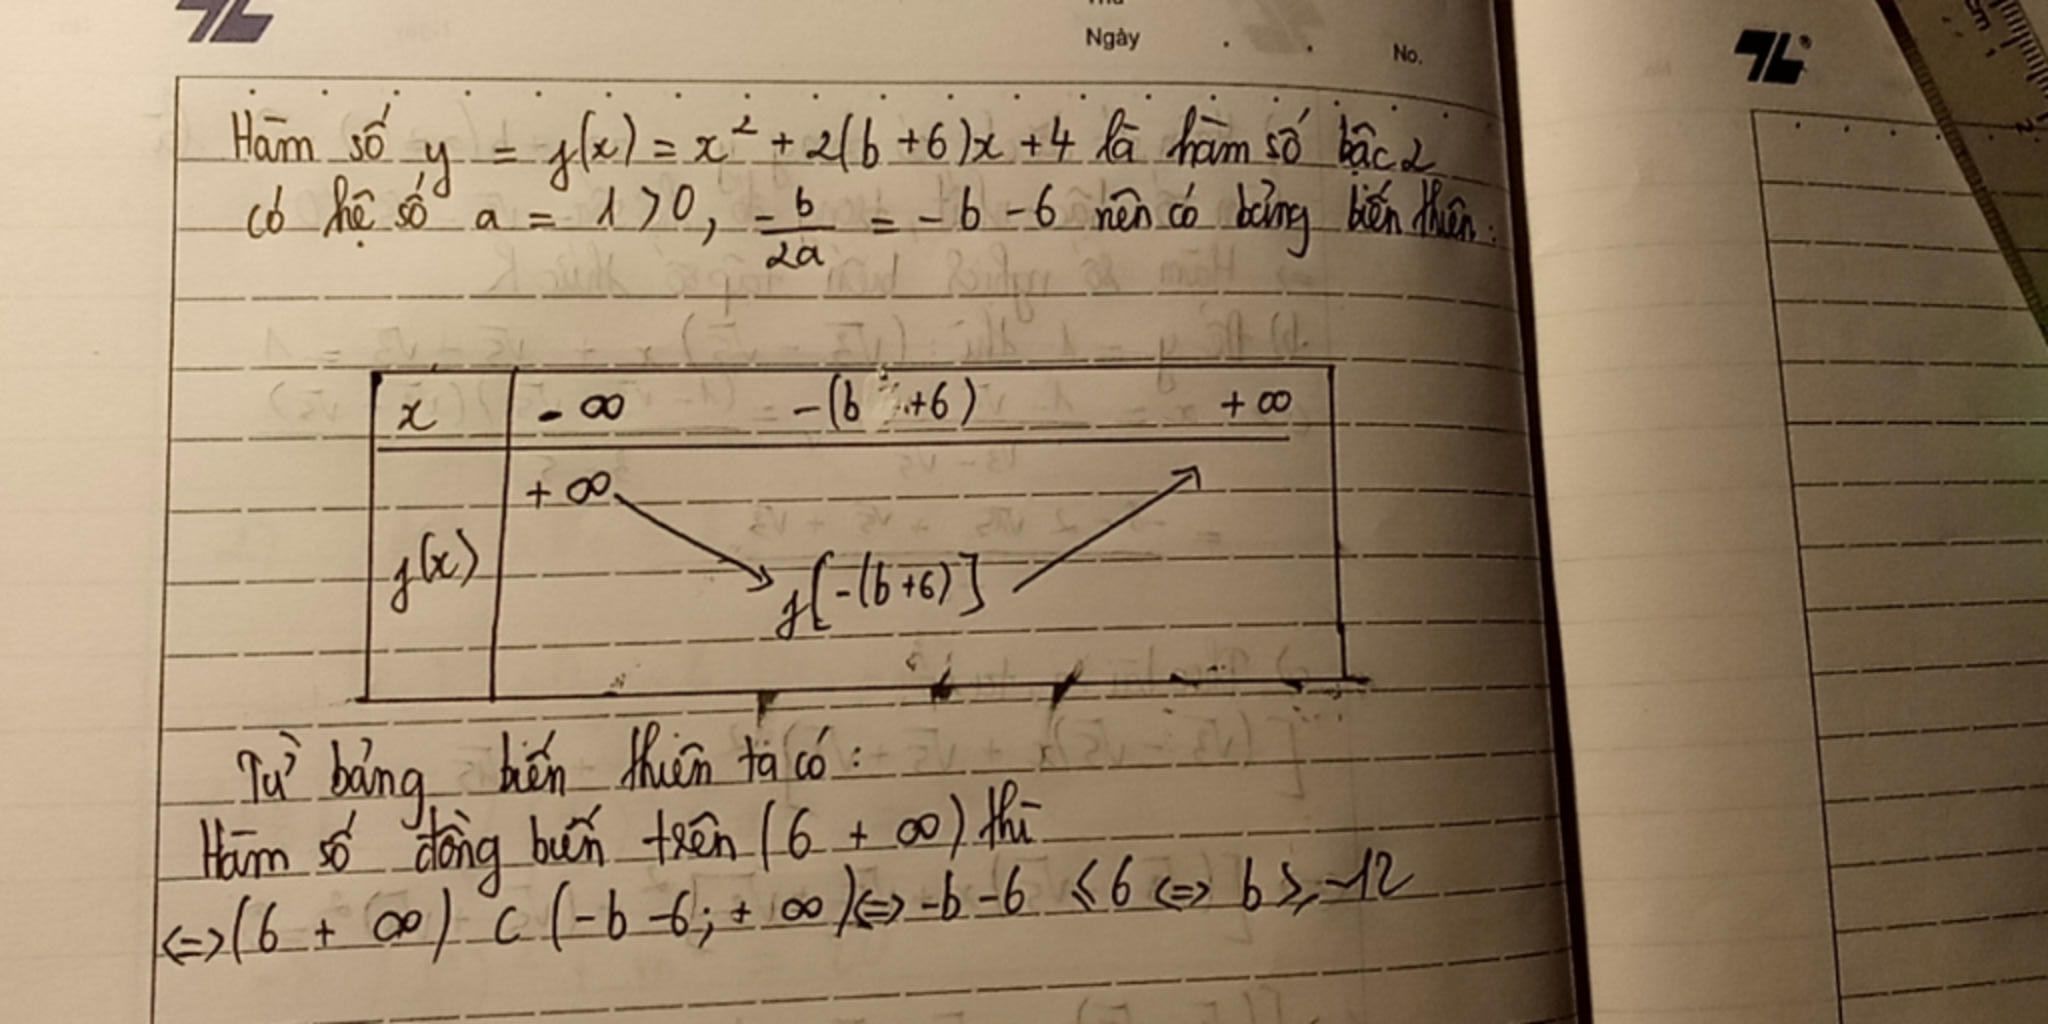 Thứ
Ngày . . No.
Hàm số y = f(x) = x² + 2(b+6)x + 4 là hàm số bậc 2
có hệ số a = 1 > 0, -b/2a = -b - 6 nên có bảng biến thiên:
x -∞ -(b+6) +∞
+∞
f(x) f[-(b+6)]
Từ bảng biến thiên ta có:
Hàm số đồng biến trên (6 + ∞) thì
<=> (6 + ∞) ⊂ (-b-6; +∞) <=> -b-6 ≤ 6 <=> b ≥ -12
cm 1
2